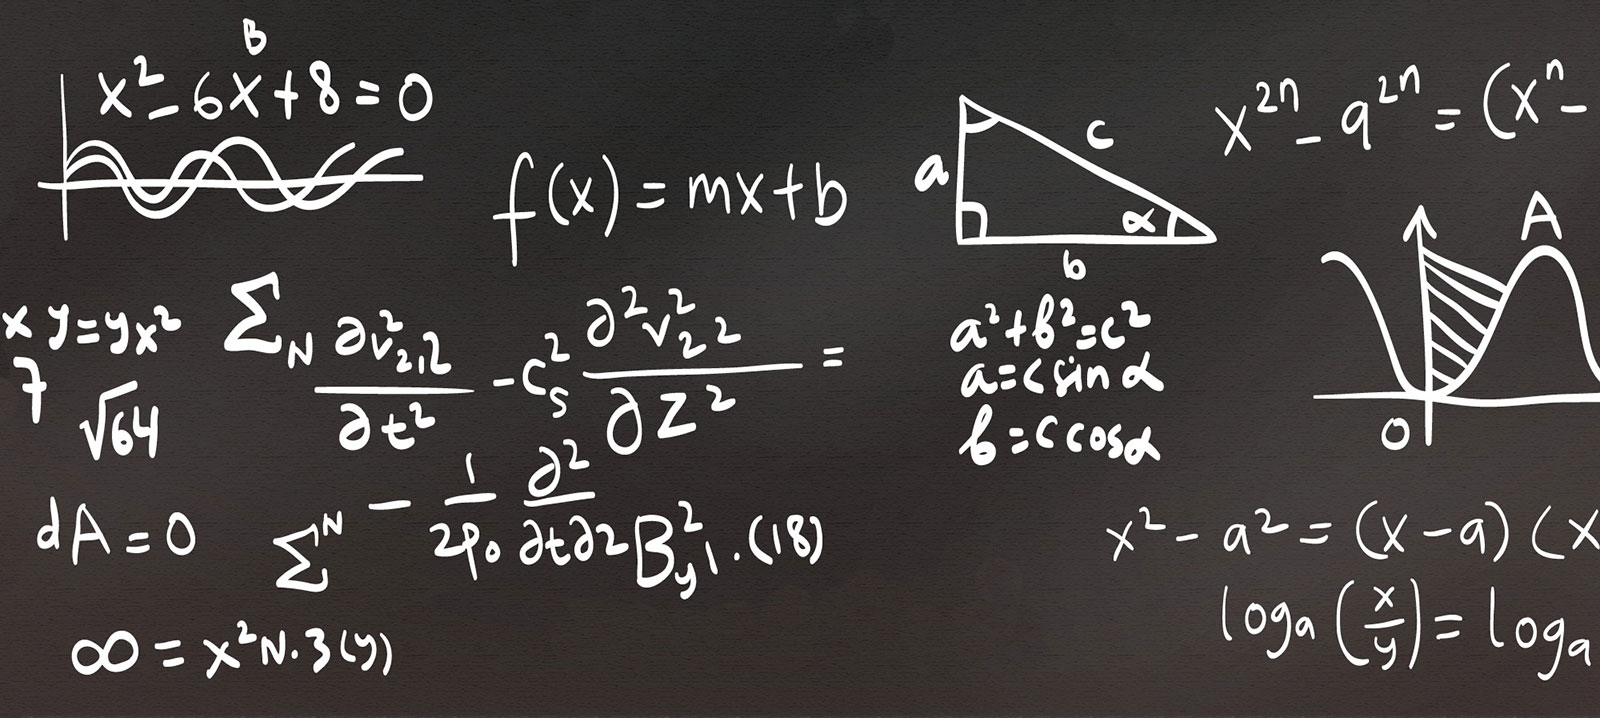 B
x² - 6x + 8 = 0
f(x) = mx + b
a
c
α
b
x²ⁿ - a²ⁿ = (xⁿ -
A
x y = yx²
7 √64
Σ_N ∂v²_2,2 / ∂t² - c²_s ∂²v²_2 2 / ∂z² =
a² + b² = c²
a = c sin α
b = c cos α
O
dA = 0
Σ^N - 1/2ρ₀ ∂²/∂t∂2 B²_y1. (18)
∞ = x²N.3(y)
x² - a² = (x - a) (x
logₐ (x/y) = logₐ